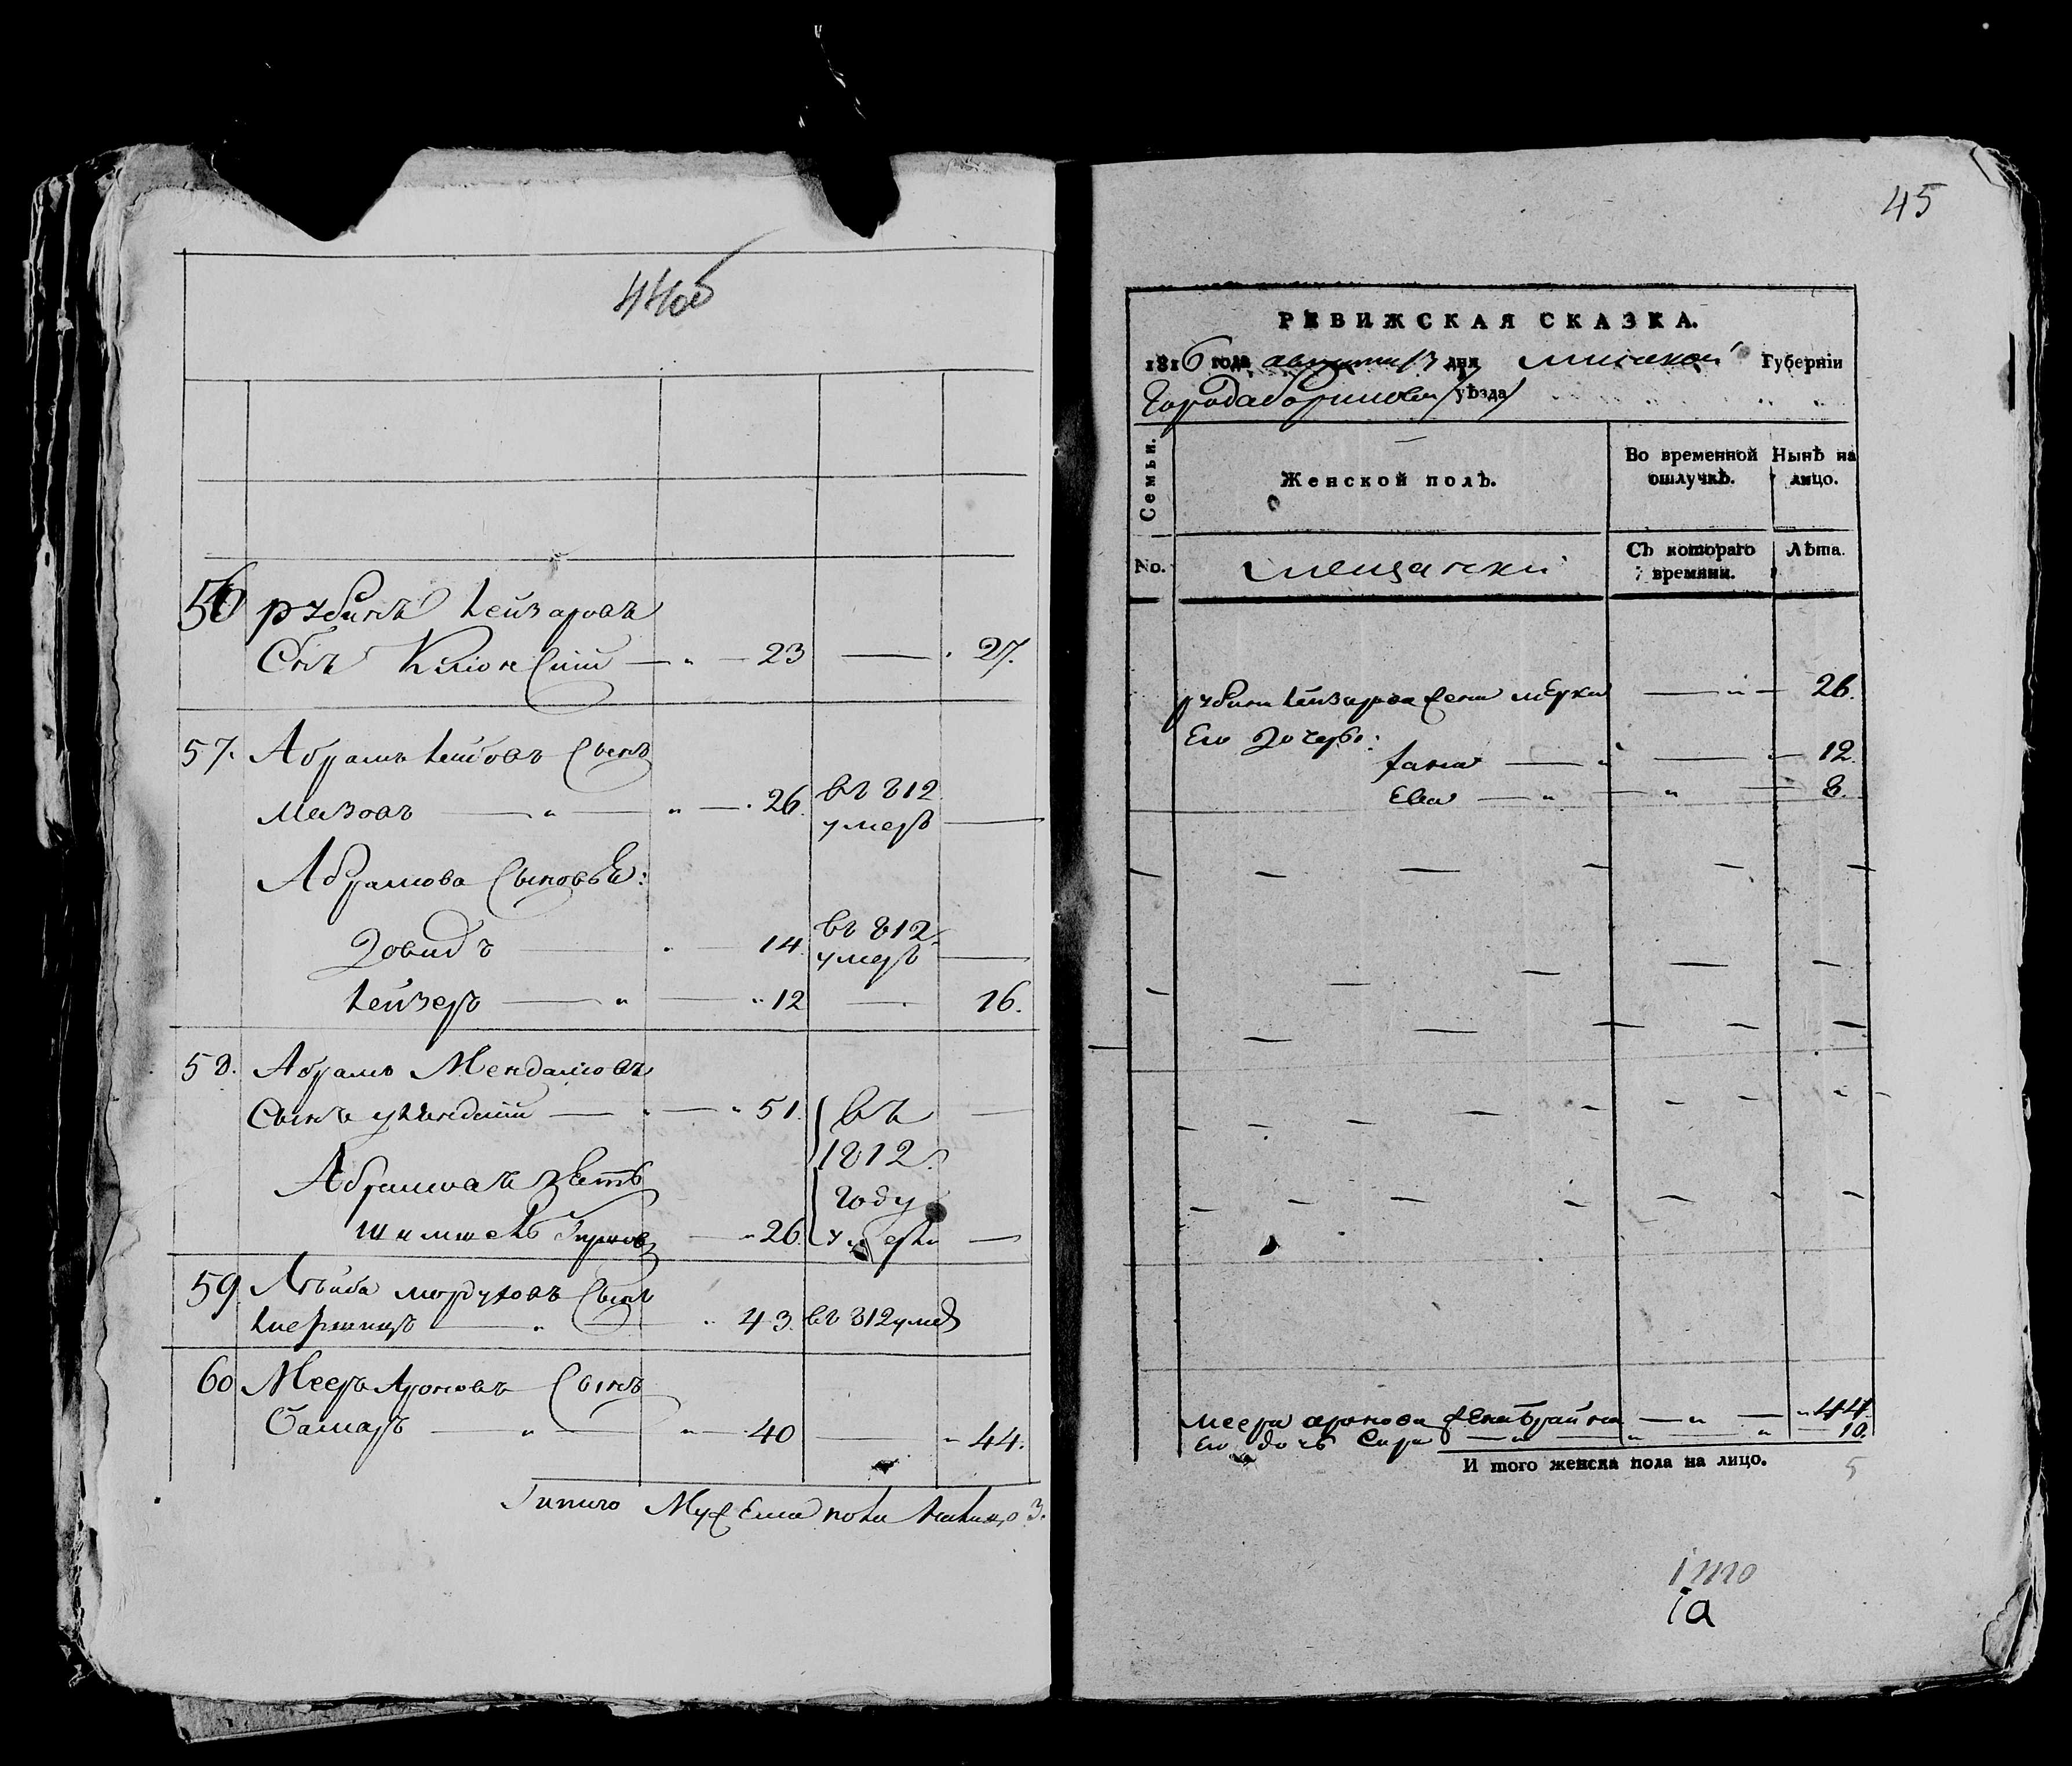 44об
56 рубинъ Лейзаровъ
Снъ 23 27.
57. Абрамъ Лейбовъ Сынъ
Мазовъ 26. въ 812
умеръ
Абрамова Сыновья:
Довидъ 14. въ 812
умеръ
Лейзеръ 12 16.
58. Абрамъ Менделіовъ
Сынъ 51. въ
1812.
году
Абрамовъ зять
26. умерли
59 Лейба мордуховъ Сынъ
43. въ 812 умер
60 Мееръ Ароновъ Сынъ
40 44.
Итого Мужеска пола налицо 3.
45
РЕВИЖСКАЯ СКАЗКА.
1816 года августа 13 дня Минской Губерніи
Города Борисова уѣзда
Семьи.
Женской полъ.
Во временной
отлучкѣ.
Нынѣ на
лицо.
No.
мещанки
Съ котораго
времяни.
Лѣта.
рубина Лейзарова жена мерка 26.
Его дочерьи:
Хана 12.
Ева 8.
Меера аронова жена райна 44.
Его дочь Сира 10.
И того женска пола на лицо.
5